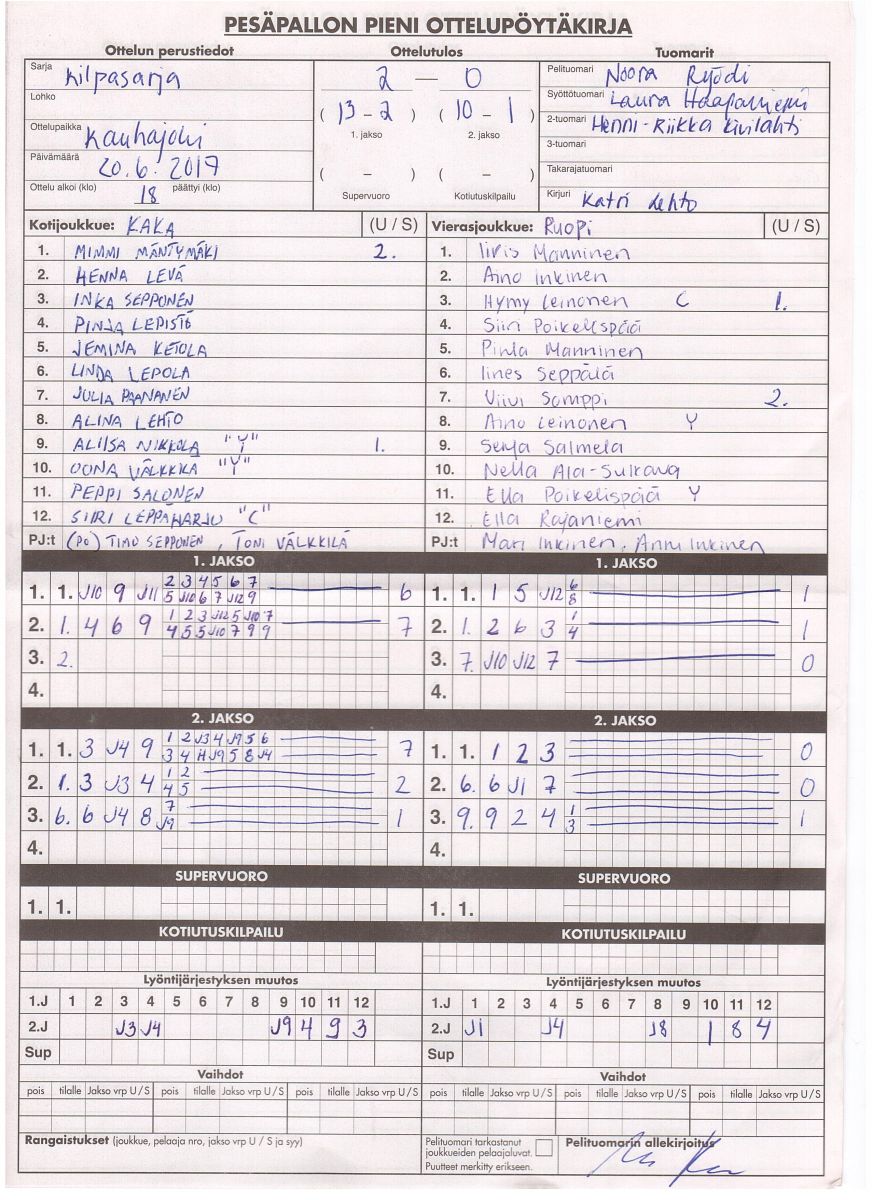 PESÄPALLON PIENI OTTELUPÖYTÄKIRJA
Ottelun perustiedot Ottelutulos Tuomarit
Sarja Kilpasarja
Lohko
Ottelupaikka Kauhajoki
Päivämäärä 20.6.2017
Ottelu alkoi (klo) 18 päättyi (klo)
2 — 0
( 13 - 2 ) ( 10 - 1 )
1. jakso 2. jakso
( – ) ( – )
Supervuoro Kotiutuskilpailu
Pelituomari Noora Ryödi
Syöttötuomari Laura Haapaniemi
2-tuomari Henni-Riikka Kivilahti
3-tuomari
Takarajatuomari
Kirjuri Katri Lehto
Kotijoukkue: KAKA (U / S)
1. MIMMI MÄNTYMÄKI 2.
2. HENNA LEVÄ
3. INKA SEPPONEN
4. PINJA LEPISTÖ
5. JEMINA KETOLA
6. LINDA LEPOLA
7. JULIA PAANANEN
8. ALINA LEHTO
9. ALIISA NIKKOLA "Y" 1.
10. OONA VÄLKKILÄ "Y"
11. PEPPI SALONEN
12. SIIRI LEPPÄHARJU "C"
PJ:t (PJ) TIMO SEPPONEN, TONI VÄLKKILÄ
Vierasjoukkue: Ruopi (U / S)
1. Iiris Manninen
2. Aino Inkinen
3. Hymy Leinonen C 1.
4. Siiri Poikelispää
5. Pinla Manninen
6. Iines Seppälä
7. Viivi Somppi 2.
8. Aino Leinonen Y
9. Senja Salmela
10. Nella Ala-Sulkava
11. Ella Poikelispää Y
12. Ella Rajaniemi
PJ:t Mari Inkinen, Anni Inkinen
1. JAKSO
1. 1. J10 9 J11 2 3 4 5 6 7 6
5 J10 6 7 J12 9
2. 1. 4 6 9 1 2 3 J12 5 J10 7 7
4 5 5 J10 7 9 9
3. 2.
4.
1. JAKSO
1. 1. 1 5 J12 6 1
8
2. 1. 2 6 3 1 1
4
3. 7. J10 J12 7 0
4.
2. JAKSO
1. 1. 3 J4 9 1 2 J3 4 J9 5 6 7
3 4 H J9 5 8 J4
2. 1. 3 J3 4 1 2 2
4 5
3. 6. 6 J4 8 7 1
J9
4.
2. JAKSO
1. 1. 1 2 3 0
2. 6. 6 J1 7 0
3. 9. 9 2 4 1 1
3
4.
SUPERVUORO SUPERVUORO
1. 1. 1. 1.
KOTIUTUSKILPAILU KOTIUTUSKILPAILU
Lyöntijärjestyksen muutos Lyöntijärjestyksen muutos
1.J 1 2 3 4 5 6 7 8 9 10 11 12 1.J 1 2 3 4 5 6 7 8 9 10 11 12
2.J J3 J4 J9 4 9 3 2.J J1 J4 J8 1 8 4
Sup Sup
Vaihdot Vaihdot
pois tilalle Jakso vrp U / S pois tilalle Jakso vrp U / S pois tilalle Jakso vrp U / S pois tilalle Jakso vrp U / S pois tilalle Jakso vrp U / S pois tilalle Jakso vrp U / S
Rangaistukset (joukkue, pelaaja nro, jakso vrp U / S ja syy)
Pelituomari tarkastanut
joukkueiden pelaajaluvat.
Puutteet merkitty erikseen.
Pelituomarin allekirjoitus